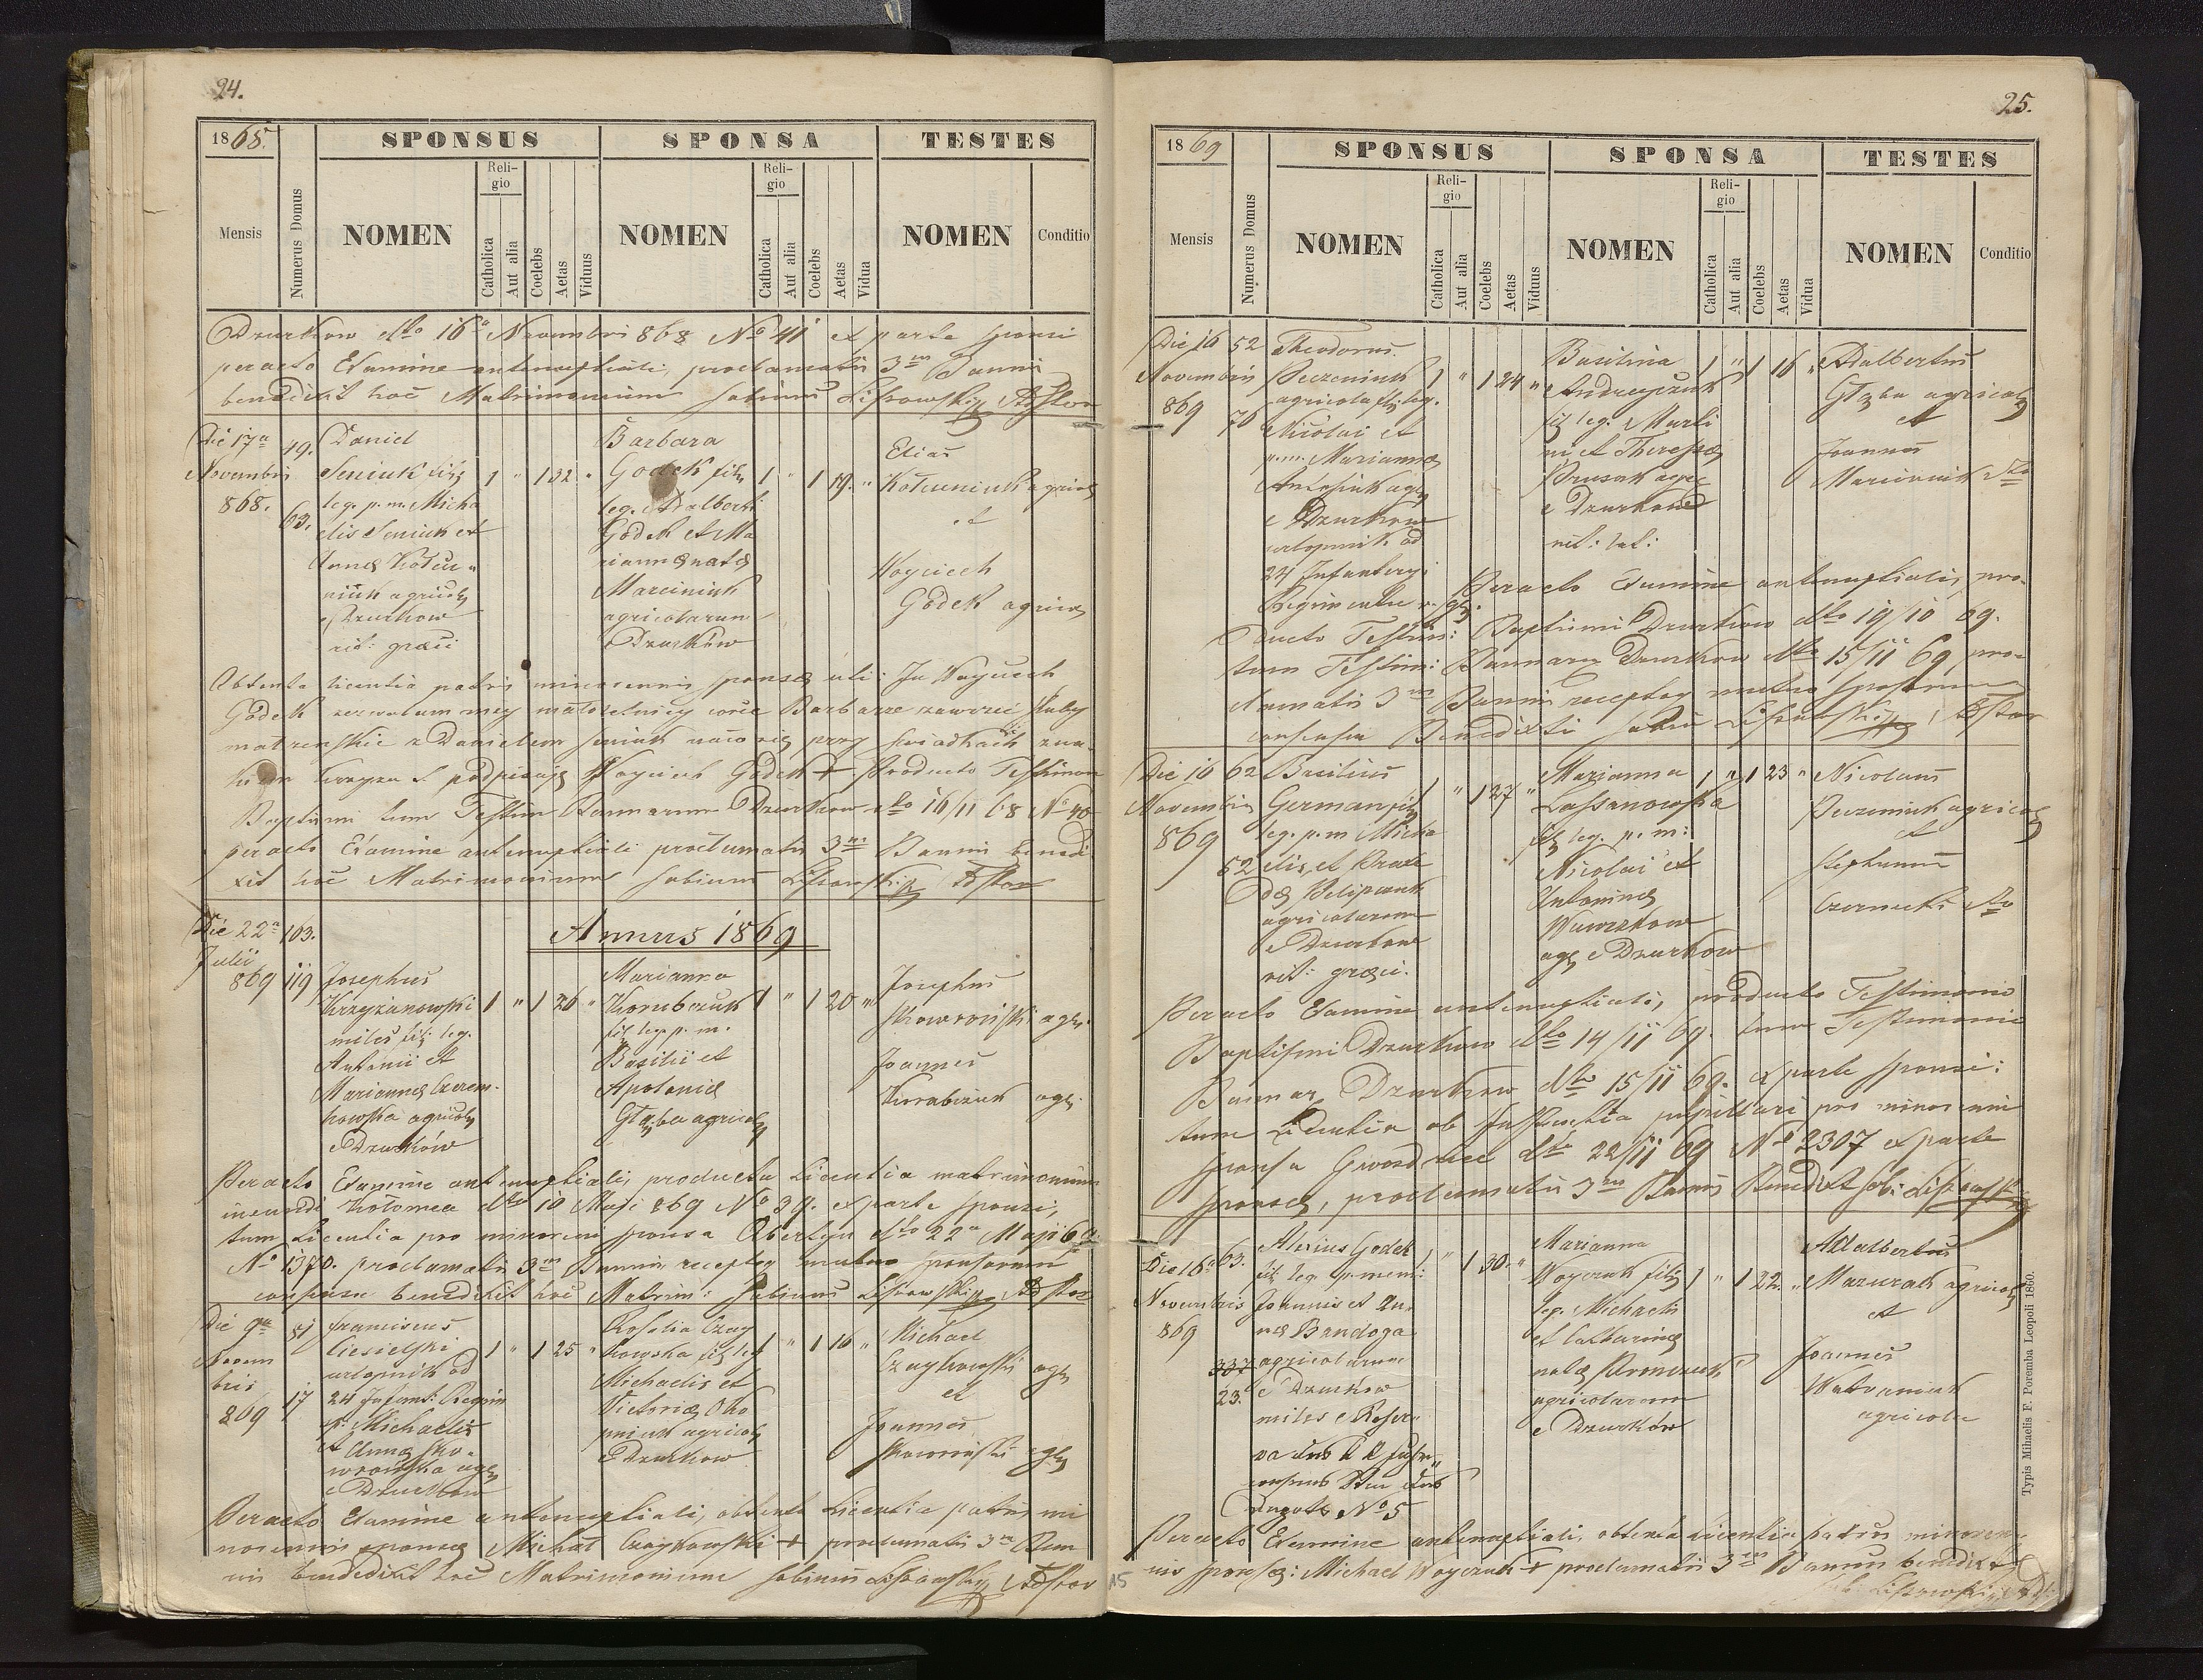 24.
1868.
SPONSUS
SPONSA
TESTES
Mensis
Numerus Domus
NOMEN
Religio
Catholica
Aut alia
Coelebs
Aetas
Viduus
NOMEN
Religio
Catholica
Aut alia
Coelebs
Aetas
Vidua
NOMEN
Conditio
Dzurkow dto 16a Novembri 868 No 41 ex parte sponsi
peracto Examine antenuptiali, proclamatis 3m Bannis
benedixit hoc Matrimonium Sabinus
Die 17a
Novembris
868.
49.
63.
Daniel
Seniuk filg
leg. p. m. Micha
elis Seniuk et
Annæ Kołcu-
niuk agricolæ
Dzurkow
rit: græci
1 " 1 32 "
Barbara
Godek filg
leg. Adalberti
Godek et Ma
riannæ natæ
Marciniuk
agricolarum
Dzurków
1 " 1 19. "
Elias
Kołcuniuk agricol
et
Woyciech
Godek agricol
Obtenta licentia patris minorennis sponsæ uti: Ja Woyciech
Godek zezwalam mey małoletniey córce Barbarze zawrzeć śluby
małżenskie z Danielem Seniuk na co się przy swiadkach zna-
kiem krzyża S podpisuję Woyciech Godek + Producto Testimon
Baptismi tum Testim Bannorum Dzurkow dto 16/11 68 No 40
peracto Examine antenuptiali proclamatis 3m Bannis bened
xit hoc Matrimonium Sabinus
Annus 1869
Die 22a
Julii
869
103.
119
Josephus
Krzyżanowski
miles filg leg.
Antonii et
Mariannæ Czerem-
howska agricolæ
e Dzurków
1 " 1 26 "
Marianna
Korubczuk
filg leg p. m.
Basilii et
Apoloniæ
Głąba agricolæ
1 " 1 20 "
Josephus
Skowroński agr.
Joannes
Korabczuk agr.
Peracto Examine antenuptiali, producta Licentia matrimonium
ineundi Kołomea dto 10 Maji 869 No 39. ex parte sponsi,
tum Licentia pro minoreni sponsa Obertyn dto 22a Maji 69
No 1370. proclamatis 3m Bannis receptoq mutuo sponsorum
consensu benedixit hoc Matrim: Sabinus
Die 9a
Novem
bris
869
81
17
Franciscus
Ciesielski
urlopnik od
24 Infant: Regim
f: Michaelis
et Annæ Sko-
wrońska agr
e Dzurkow
1 " 1 25 "
Rosalia Czay
kowska filg leg
Michaelis et
Victoriæ Oko
pniuk agricolæ
e Dzurkow
1 " 1 16 "
Michael
Czaykowski agr
et
Joannes
Skowroński agr
Peracto Examine antenuptiali, obtenta Licentia patris mi
norennis sponsæ Michał Czaykowski + proclamatis 3m Ban
nis benedixit hoc Matrimonium Sabinus
25.
1869
SPONSUS
SPONSA
TESTES
Mensis
Numerus Domus
NOMEN
Religio
Catholica
Aut alia
Coelebs
Aetas
Viduus
NOMEN
Religio
Catholica
Aut alia
Coelebs
Aetas
Vidua
NOMEN
Conditio
Die 16
Novembris
869
52
76
Theodorus
Peczeniuk
agricola filg leg.
Nicolai et
p.m. Mariannæ
agr
e Dzurkow
urlopnik od
24 Infanteryi
1 " 1 24 "
Basilina
Andreyczuk
filg leg. Marti
ni et Theresæ
Prusak agr
e Dzurkow
rit: lat:
1 " 1 16 "
Adalbertus
Głąba agricola
et
Joannes
Marciniuk dto
Peracto Examine antenuptiali, pro-
ducto Testim: Baptismi Dzurkow dto 19/10 69.
tum Testim: Bannorum Dzurkow dto 15/11 69 pro-
clamatis 3m Bannis receptoq mutuo sponsorum
consensu Benedixit
Die 16
Novembris
869
62
52
Basilius
German filg
leg. p. m Micha
elis, et Praxe
dæ Pelipczuk
agricolarum
e Dzurkow
rit: græci.
1 " 1 27 "
Marianna
Lassanowska
filg leg. p. m:
Nicolai et
Antoninæ
agr e Dzurkow
1 " 1 23 "
Nicolaus
Peczeniuk agricola
et
Stephanus
Czernecki dto
Peracto Examine antenuptiali, producto Testimonio
Baptismi Dzurkow dto 14/11 69. tum Testimonio
Bannor Dzurkow dto 15/11 69. ex parte sponsi:
tum Licentia ab Instantia pupillari pro minorenni
sponsa Gwozdziec dto 22/11 69 No 2307 ex parte
sponsæ, proclamatis 3m Bannis Benedixit
Die 16a
Novembris
869
63.
337
23.
Alexius Godek
filg leg. p. mem:
Joannis et An-
næ Bandoga
agricolarum
e Dzurkow
miles e Reser-
No 5
1 " 1 30. "
Marianna
Woyczuk filg
leg. Michaelis
et Catharinæ
natæ
agricolarum
e Dzurków
1 " 1 22. "
Adalbertus
Mazurak agricola
et
Joannes
agricola
Peracto Examine antenuptiali, obtenta Licentia patris minoren-
nis sponsæ: Michael Woyczuk + proclamatis 3m Bannis benedixit
15
Typis Mihaelis F. Poremba Leopoli 1860.